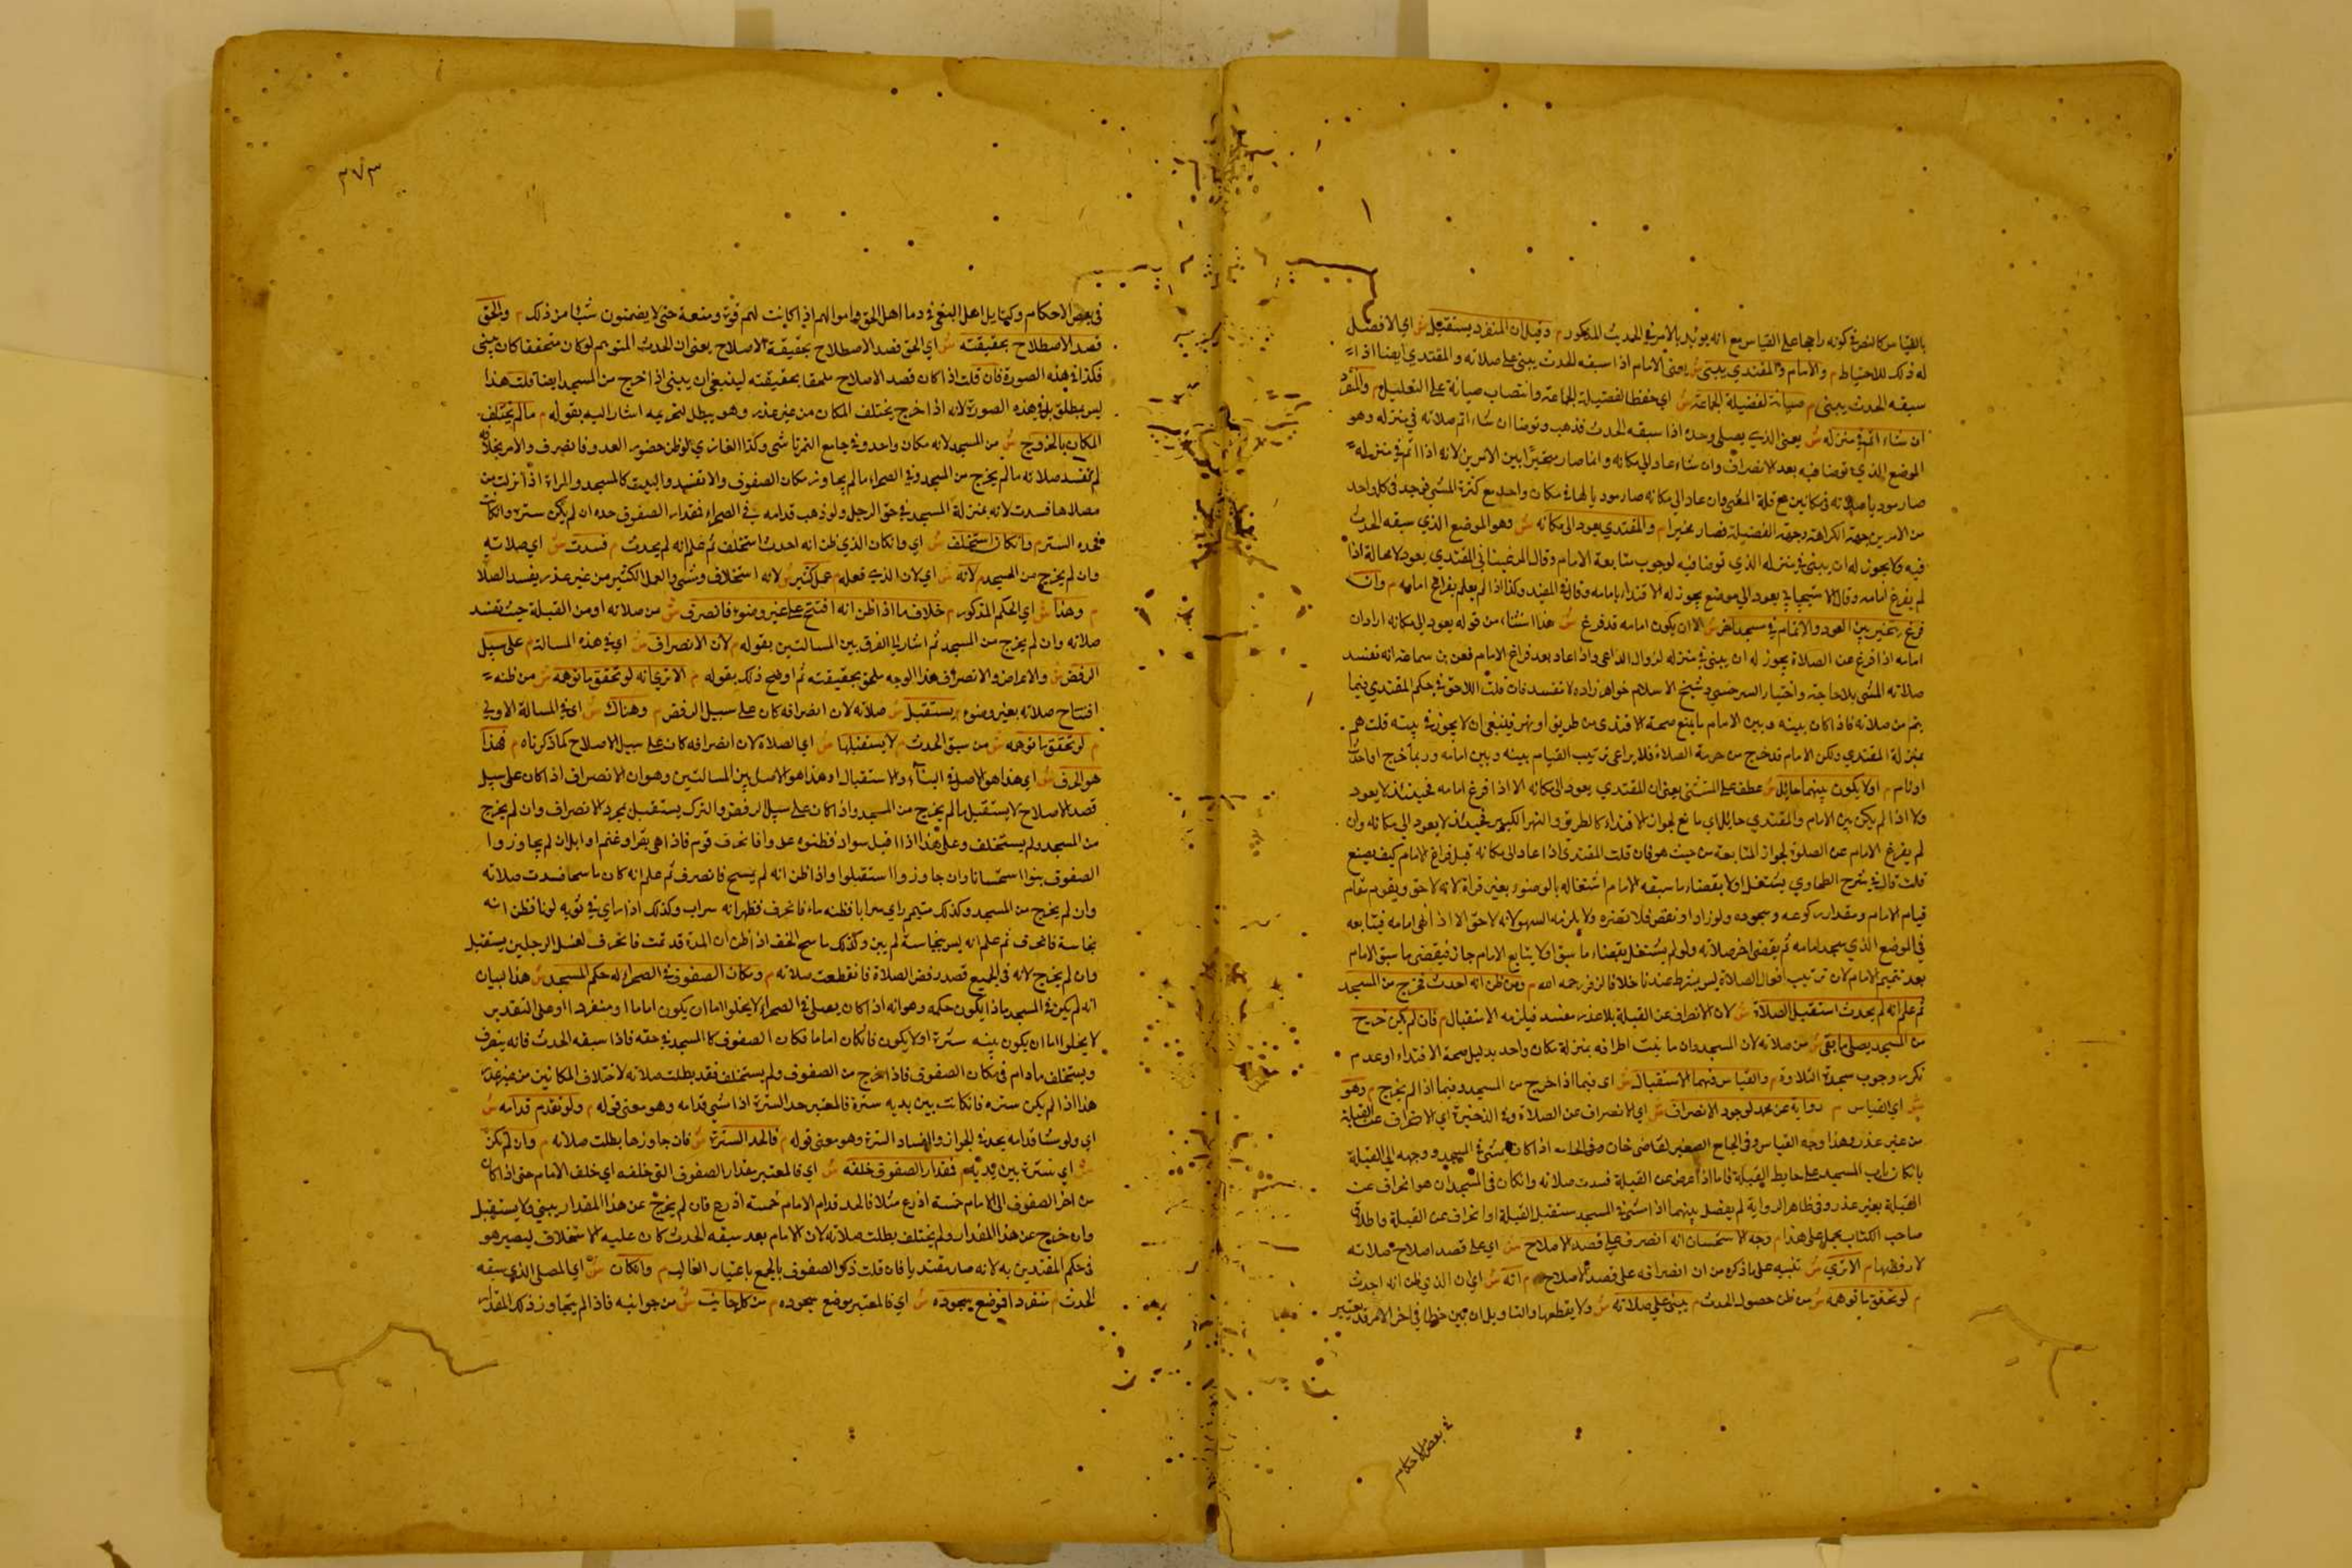 بالقياس كالنص في كونه راجحا على القياس مع انه يؤيد بالامر في الحديث المذكور م وقيل ان المنفرد يستقبل ش اي الافضل
له ذلك للاحتياط م والامام والمقتدي يبني ش يعني الامام اذا سبقه الحدث يبني على صلاته والمقتدي ايضا اذا
سبقه الحدث يبني م صيانة لفضيلة الجماعة ش اي حفظا لفضيلة الجماعة وانتصاب صيانة على التعليل م والمنفرد
ان شاء اتم في منزله ش يعني الذي يصلي وحده اذا سبقه الحدث فذهب وتوضأ ان شاء اتم صلاته في منزله وهو
الموضع الذي توضا فيه بعد الانصراف وان شاء عاد الي مكانه وانما صار مخيرا بين الامرين لانه اذا اتم في منزله
صار موديا صلاته في مكانين مع قلة المشي وان عاد الي مكانه صار موديا لها في مكان واحد مع كثرة المشي فوجد في كل واحد
من الامرين جهة الكراهة وجهة الفضيلة فصار مخيرا م والمقتدي يعود الى مكانه ش وهو الموضع الذي سبقه الحدث
فيه فلا يجوز له ان يبني في منزله الذي توضا فيه لوجوب متابعة الامام وقال المرغيناني المقتدي يعود لا محالة اذا
لم يفرغ امامه وقال الاسبيجابي يعود الي موضع يجوز له الاقتداء بامامه وقال في المفيد وكذا اذا لم يعلم بفراغ امامه م وان
فرغ يتخير بين العود والاتمام في مسجد اخر ش الا ان يكون امامه قد فرغ ش هذا استثناء من قوله يعود الى مكانه اراد ان
امامه اذا فرغ عن الصلاة يجوز له ان يبني في منزله لزوال الداعي واذا عاد بعد فراغ الامام فعن بن سماعة انه تفسد
صلاته للمشي بلا حاجة واختيار السرخسي وشيخ الاسلام خواهر زاده لا تفسد فان قلت اللاحق في حكم المقتدي فيما
يتم من صلاته فاذا كان بينه وبين الامام ما يمنع صحة الاقتدى من طريق او نهر فينبغي ان لا يجوز في بيته قلت هو
بمنزلة المقتدي ولكن الامام قد خرج من حرمة الصلاة فلا يراعي ترتيب القيام بينه وبين امامه وربما خرج او احدث
او نام م او لا يكون بينهما حائل ش عطف على المستثنى يعني ان المقتدي يعود الى مكانه الا اذا فرغ امامه فحينئذ لا يعود
ولا اذا لم يكن بين الامام والمقتدي حائل اي مانع لجواز الاقتداء كالطريق والنهر الكبير فحينئذ لا يعود الي مكانه وان
لم يفرغ الامام عن الصلوة لجواز المتابعة من حيث هو فان قلت المقتدي اذا عاد الى مكانه قبل فراغ الامام كيف يصنع
قلت قال في شرح الطحاوي يشتغل اولا بقضاء ما سبقه الامام اشتغاله بالوضوء بغير قراة لانه لاحق ويقوم مقام
قيام الامام ومقدار ركوعه وسجوده ولو زاد او نقص فلا تضره ولا يلزمه السهو لانه لاحق الا اذا انهى امامه فيتابعه
في الموضع الذي سجد امامه ثم يقضي اخر صلاته ولو لم يشتغل بقضاء ما سبق اولا يتابع الامام جاز فيقضي ما سبق الامام
بعد تتميم الامام لان ترتيب افعال الصلاة ليس بشرط عندنا خلافا لزفر رحمه الله م ومن ظن انه احدث فخرج من المسجد
ثم علم انه لم يحدث استقبل الصلاة ش لان الانصراف عن القبلة بلا عذر مفسد فيلزمه الاستقبال م فان لم يكن خرج
من المسجد يصلي ما بقي ش من صلاته لان المسجد وان تباينت اطرافه بمنزلة مكان واحد بدليل صحة الاقتداء او عدم
تكرر وجوب سجدة التلاوة م والقياس فيهما الاستقبال ش اي فيما اذا خرج من المسجد وفيما اذا لم يخرج م وهو
ش اي القياس م رواية عن محمد لوجود الانصراف ش اي الانصراف عن الصلاة وفي الذخيرة اي الانحراف عن القبلة
من غير عذر وهذا وجه القياس وفي الجامع الصغير لقاضي خان اذا كان يمشي في المسجد ووجهه الي القبلة
بان كان باب المسجد على حايط القبلة فاما اذا اعرض عن القبلة فسدت صلاته وان كان في المسجد ان هو انحراف عن
القبلة بغير عذر وفي ظاهر الرواية لم يفصل بينهما اذا مشى في المسجد مستقبل القبلة او انحراف عن القبلة واطلاق
صاحب الكتاب يحمل على هذا م وجه الاستحسان انه انصرف على قصد الاصلاح ش اي على قصد اصلاح صلاته
لا رفضها م الا تري ش تنبيه على ما ذكره من ان انصرافه على قصد الاصلاح م انه ش اي ان الذي ظن انه احدث
م لو تحقق ما توهمه ش من ظن حصول الحدث م يبني على صلاته ش ولا يقطعها والتاويل ان تبين خطا في اخر الامر قد يعتبر
في بعض الاحكام
٣٧٣
في بعض الاحكام وكما يل اهل البغي في دما اهل الحق واموالهم اذا كانت لهم قوة ومنعة حتى لا يضمنون شيئا من ذلك م والحق
قصد الاصطلاح بحقيقته ش اي الحق قصد الاصطلاح بحقيقة الاصلاح يعني ان الحدث المتوهم لو كان متحققا كان يبني
فكذا في هذه الصورة فان قلت اذا كان قصد الاصلاح ملحقا بحقيقته لينبغي ان يبني اذا خرج من المسجد ايضا قلت هذا
ليس بمطلق بل في هذه الصورة لانه اذا خرج يختلف المكان من غير عذر وهو يبطل لتحريمه اشار اليه بقوله م ما لم يختلف
المكان بالخروج ش من المسجد لانه مكان واحد وفي جامع التمرتاشي وكذا الغازي لو ظن حضور العدو فانصرف والامر بخلافه
لم تفسد صلاته ما لم يخرج من المسجد وفي الصحراء ما لم يجاوز مكان الصفوف والا تفسد والبيت كالمسجد والمراة اذا نزلت من
مصلاها فسدت لانه بمنزلة المسجد في حق الرجل ولو ذهب قدامه في الصحراء فمقدار الصفوف حده ان لم يكن سترة وان كانت
فحده الستر م وان كان استخلف ش اي وان كان الذي ظن انه احدث استخلف ثم علم انه لم يحدث م فسدت ش اي صلاته
وان لم يخرج من المسجد م لانه ش اي لان الذي فعله م عمل كثير ش لانه استخلاف ومشى والعمل الكثير من غير عذر يفسد الصلاة
م وهذا ش اي الحكم المذكور م خلاف ما اذا ظن انه افتتح على غير وضوء فانصرف ش من صلاته او من القبلة حيث تفسد
صلاته وان لم يخرج من المسجد ثم اشار الي الفرق بين المسالتين بقوله م لان الانصراف ش اي في هذه المسالة م على سبيل
الرفض ش والاعراض والانصراف هذا الوجه ملحق بحقيقته ثم اوضح ذلك بقوله م الا تري انه لو تحقق ما توهمه ش من ظنه
افتتاح صلاته بغير وضوء م يستقبل ش صلاته لان انصرافه كان على سبيل الرفض م وهناك ش اي في المسالة الاولي
م لو تحقق ما توهمه ش من سبق الحدث م لا يستقبلها ش اي الصلاة لان انصرافه كان على سبيل الاصلاح كما ذكرناه م فهذا
هو الحرف ش اي هذا هو الاصل في البناء والاستقبال او هذا هو الاصل بين المسالتين وهو ان الانصراف اذا كان على سبيل
قصد الاصلاح لا يستقبل ما لم يخرج من المسجد واذا كان على سبيل الرفض والترك يستقبل بمجرد الانصراف وان لم يخرج
من المسجد ولم يستخلف وعلى هذا اذا اقبل سواد فظنوه عدوا فانحرف قوم فاذا هي بقر او غنم او ابل ان لم يجاوزوا
الصفوف بنوا استحسانا وان جاوزوا استقبلوا واذا ظن انه لم يمسح فانصرف ثم علم انه كان ماسحا فسدت صلاته
وان لم يخرج من المسجد وكذلك متيمم راي سرابا فظنه ماء فانحرف فظهر انه سراب وكذلك اذا راي في ثوبه لونا فظن انه
نجاسة فانحرف ثم علم انه ليس بنجاسة لم يبن وكذلك ماسح الخف اذا ظن ان المدة قد تمت فانحرف لغسل الرجلين يستقبل
وان لم يخرج لانه في الجميع قصد رفض الصلاة فانقطعت صلاته م ومكان الصفوف في الصحراء له حكم المسجد ش هذا لبيان
انه لم يكن في المسجد ماذا يكون حكمه وهو انه اذا كان يصلي في الصحراء لا يخلوا اما ان يكون اماما او منفردا او على التقدير
لا يخلوا اما ان يكون بينه سترة او لا يكون فان كان اماما فكان الصفوف كالمسجد في حقه فاذا سبقه الحدث فانه ينصرف
ويستخلف مادام في مكان الصفوف فاذا خرج من الصفوف ولم يستخلف فقد بطلت صلاته لاختلاف المكانين من غير عذر
هذا اذا لم يكن سترة فان كانت بين يديه سترة فالمعتبر حد السترة اذا مشى قدامه وهو معنى قوله م ولو تقدم قدامه ش
اي ولو مشا قدامه يحد في الجواز والفساد السترة وهو معنى قوله م فالحد السترة ش فان جاوزها بطلت صلاته م وان لم يكن
ش اي سترة بين يديه م فمقدار الصفوف خلفه ش اي فالمعتبر مقدار الصفوف التي خلفه اي خلف الامام حتى اذا كان
من اخر الصفوف الى الامام خمسة اذرع مثلا فالحد قدام الامام خمسة اذرع فان لم يخرج عن هذا المقدار يبني ولا يستقبل
وان خرج عن هذا المقدار ولم يختلف بطلت صلاته لان الامام بعد سبقه الحدث كان عليه الاستخلاف ليصير هو
في حكم المقتدين به لانه صار مقتديا فان قلت ذكر الصفوف بالجمع باعتبار الغالب م وان كان ش اي المصلي الذي سبقه
الحدث م منفردا فموضع سجوده ش اي فالمعتبر موضع سجوده م من كل جانب ش من جوانبه فاذا لم يتجاوز ذلك المقدار